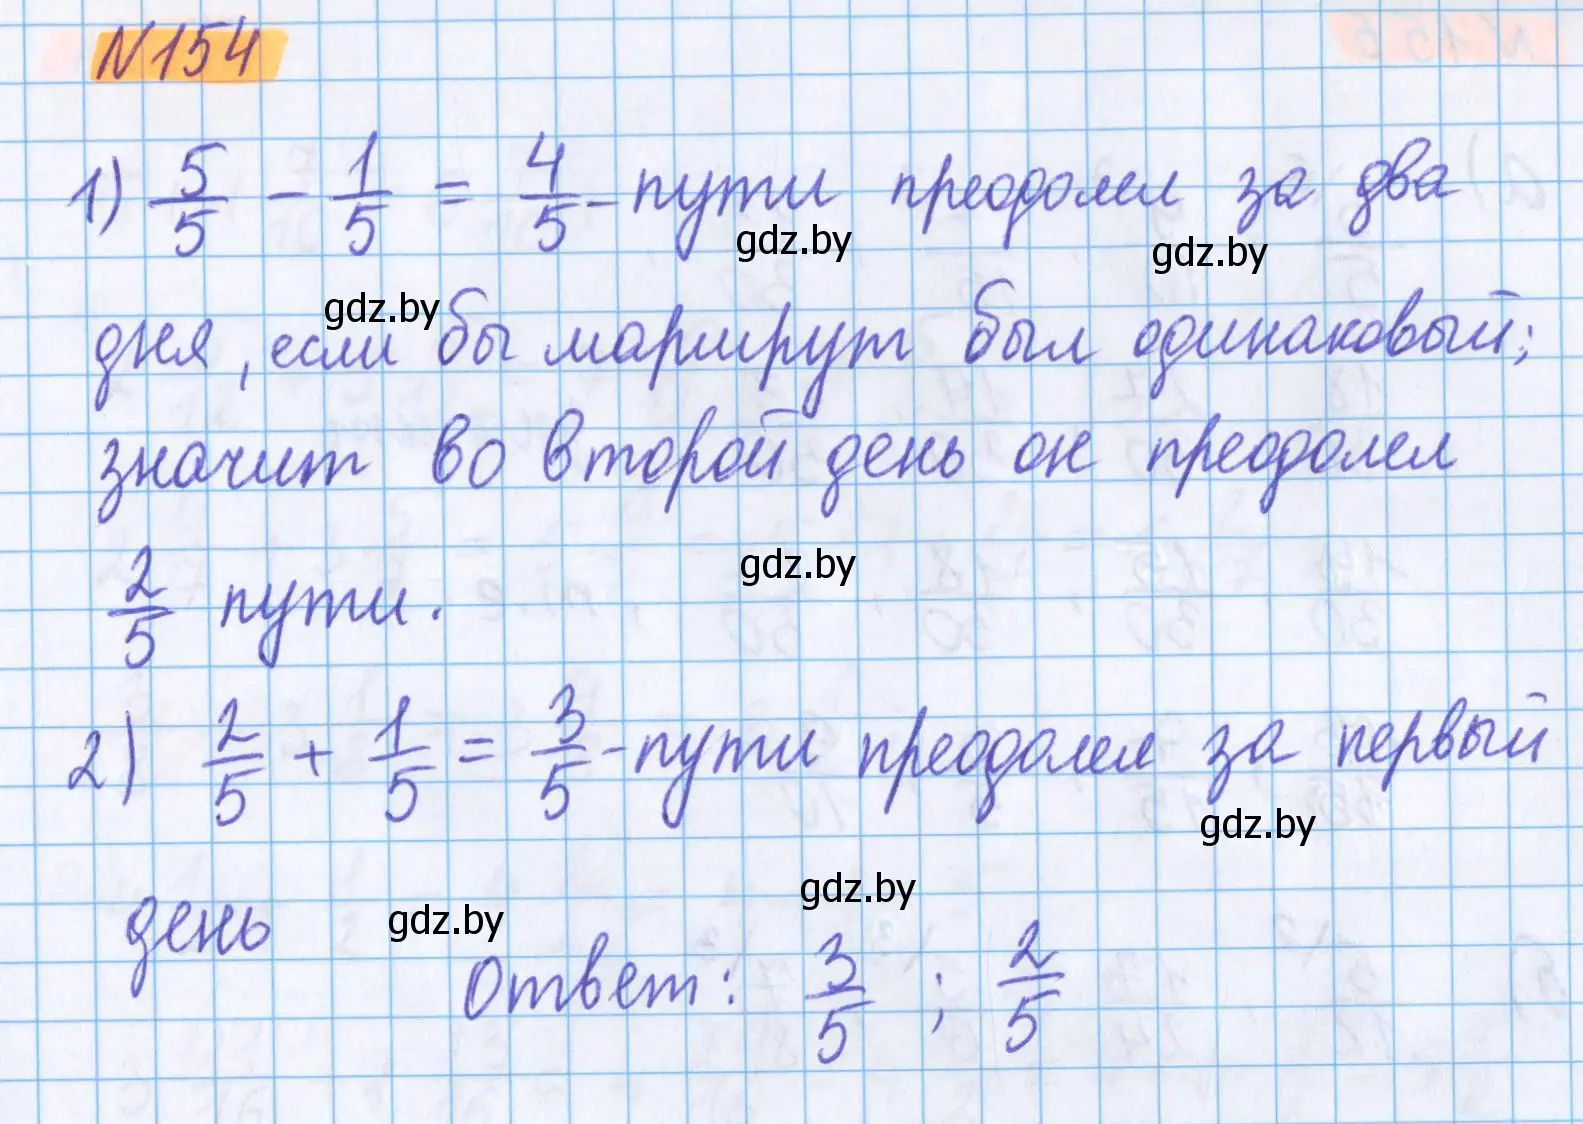 N154
1) 5/5 - 1/5 = 4/5 - пути преодолел за два
gdz.by gdz.by
gdz.by
дня, если бы маршрут был одинаковый;
значит во второй день он преодолел
gdz.by
2/5 пути.
2) 2/5 + 1/5 = 3/5 - пути преодолел за первый
gdz.by
gdz.by
день gdz.by
Ответ: 3/5 ; 2/5